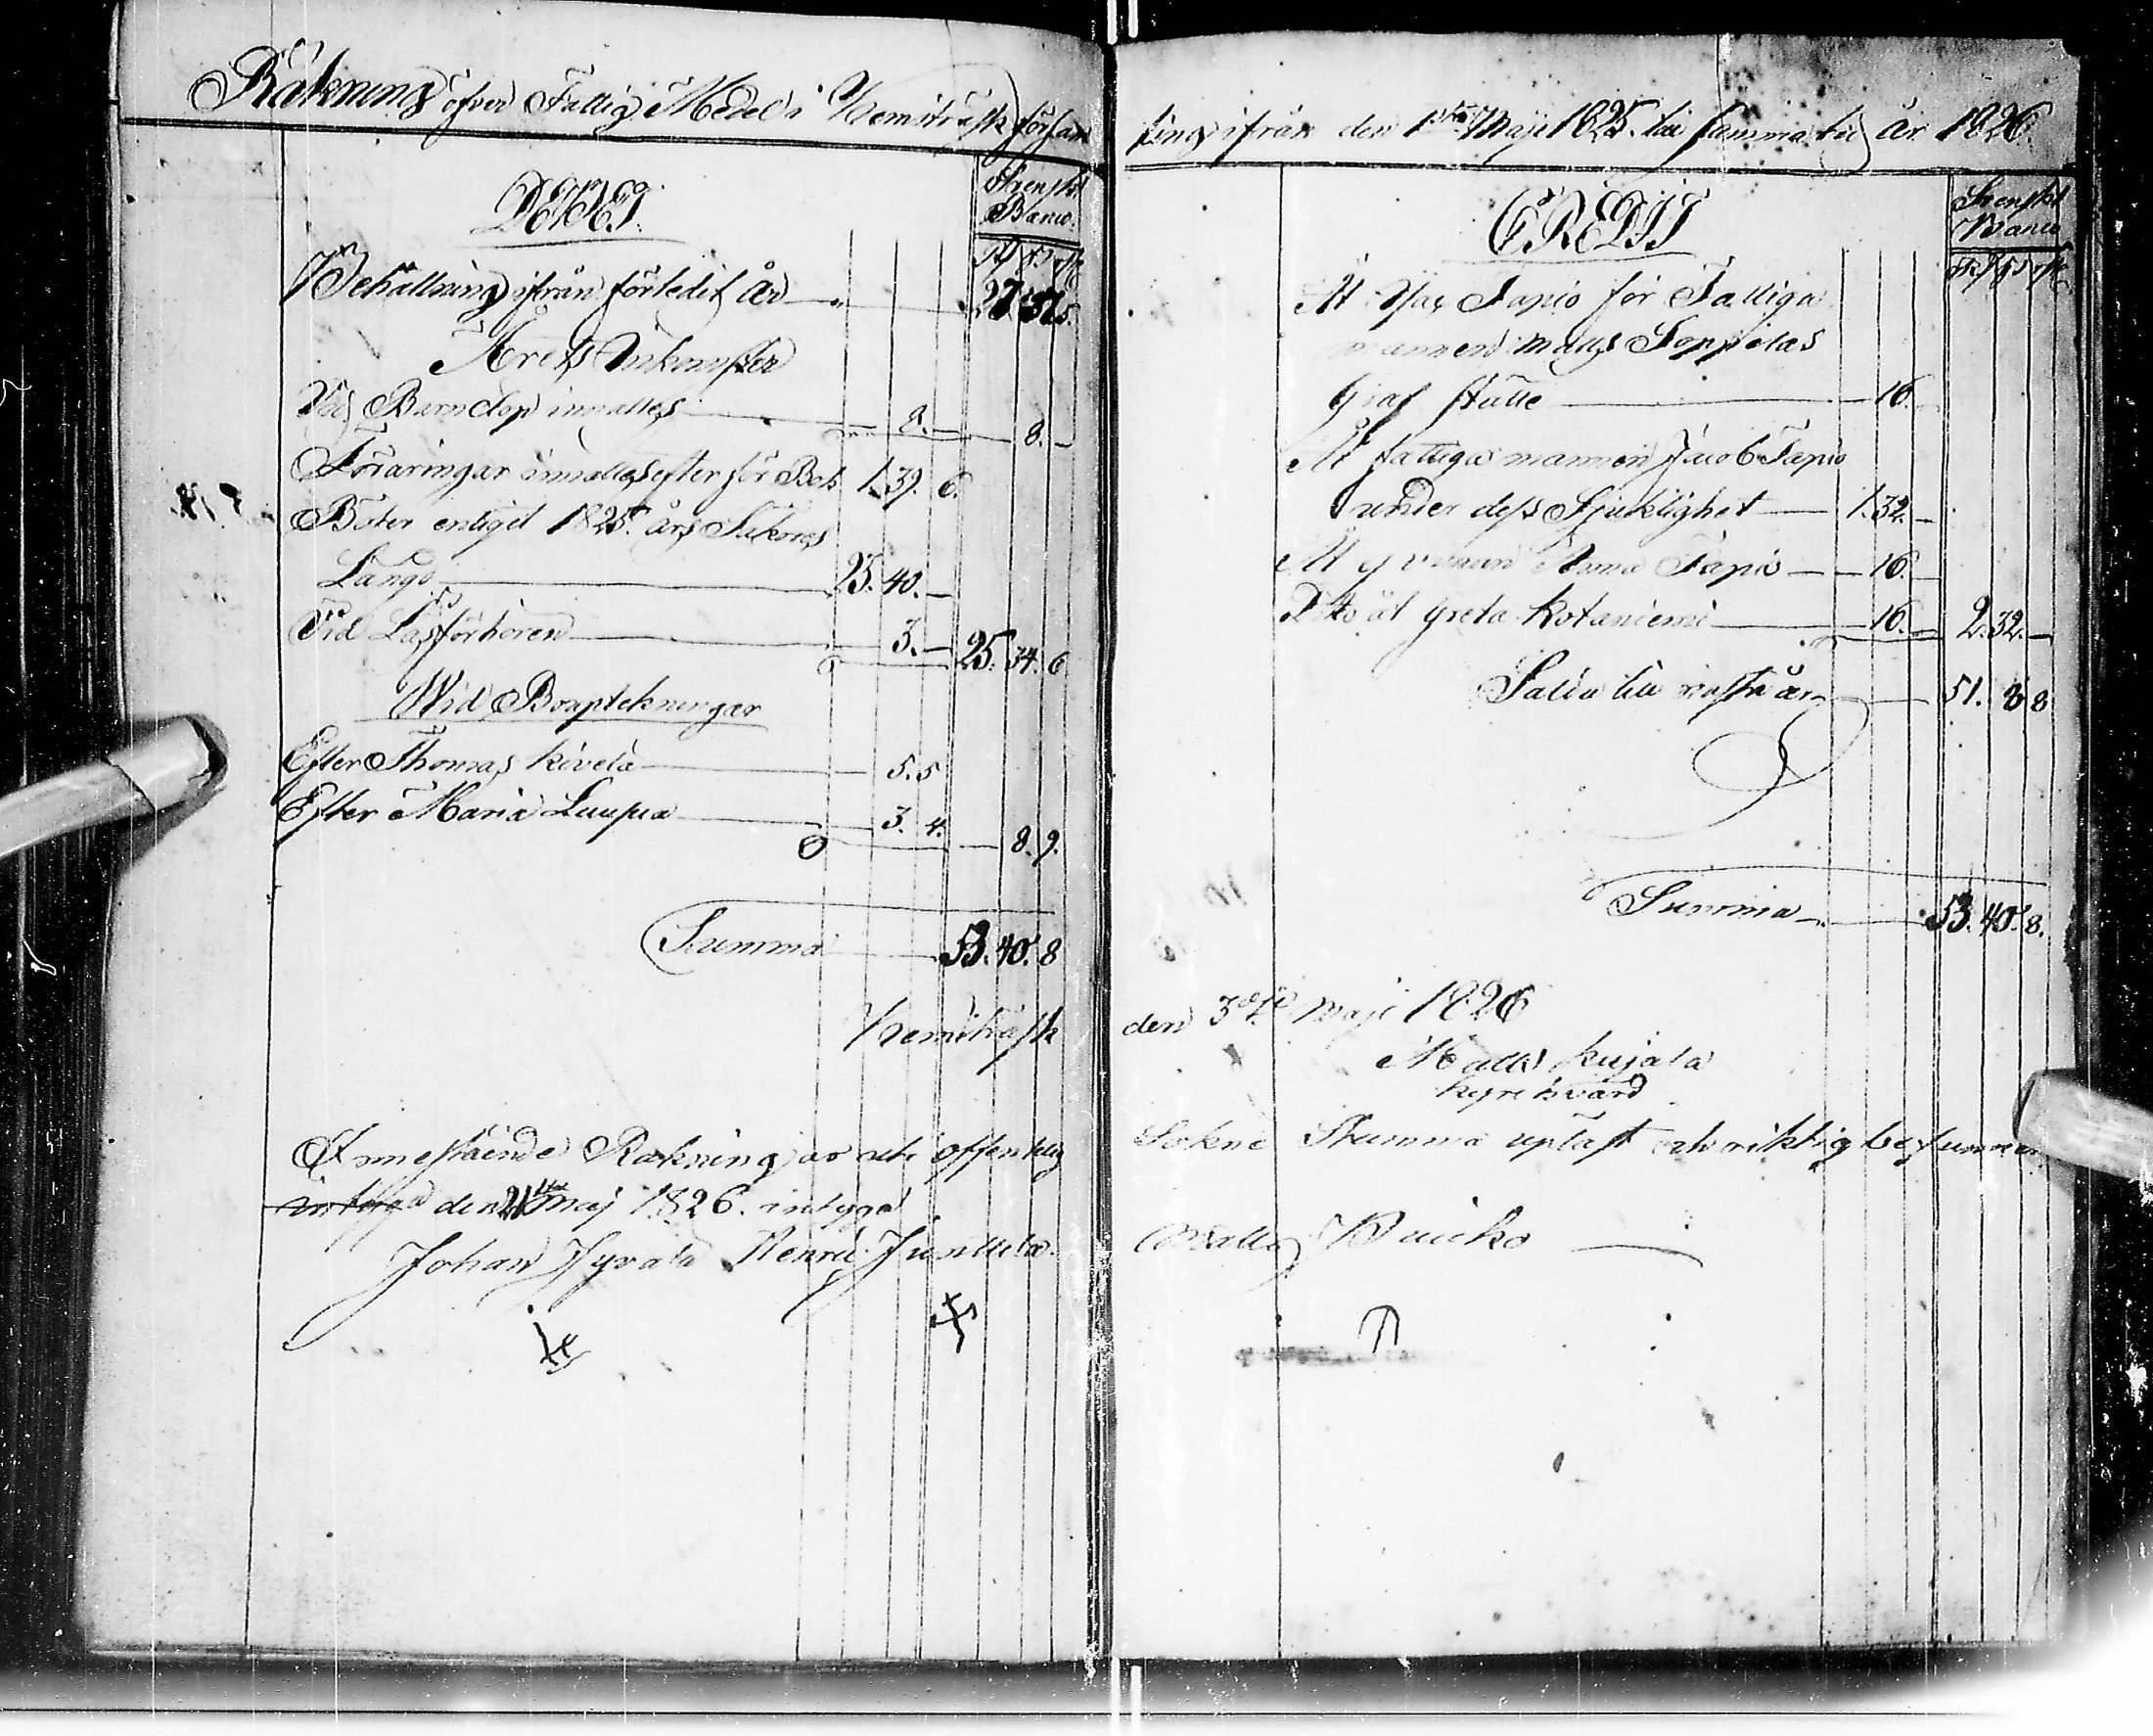 Räkning öfver Fattig Medel i Kemiträsk församling ifrån den 1sta Maji 1825 till samma tid år 1826
DEBET.
Svenskt Banco.
Rd s rst
Behållning ifrån förledit år 27. 37. 5.
Årets Inkomster
Vid Barndop innalles 8. — 8. —
Föräringar innalles efter för Bok 1. 39. 6.
Böter enligit 1825 års Saköres
Längd 25. 40. —
Vid Läsförhören 3. — 25. 34. 6
Wid Boupteckningar
Efter Thomas Kivelä 5. 5
Efter Maria Luupia 3. 4. — 8. 9.
Summa 53. 40. 8
Kemiträsk
Ofvanestående Räkning är uti offentelig
intyga den 21sta Maj 1826. intyga
Johan Jyvälä Henric Junttila
CREDIT
Svenskt Banco
Rd s rst
At Jac Tapio för Fattiga
mannen Matts Toppilas
Graf ställe 16. —
At fattiga mannen Jacob Tapio
under dess Sjuklighet 1. 32. —
At q vinnan Anna Tapio — 16. —
Dito åt Greta Kotaniemi 16. — 2. 32. —
Saldo till nästa år 51. 8 8
Summa 53. 40. 8.
den 30de Maji 1826
Matts Kujala
kyrckvärd
Sokne Stämma upläst och riktig befunnen
Matts